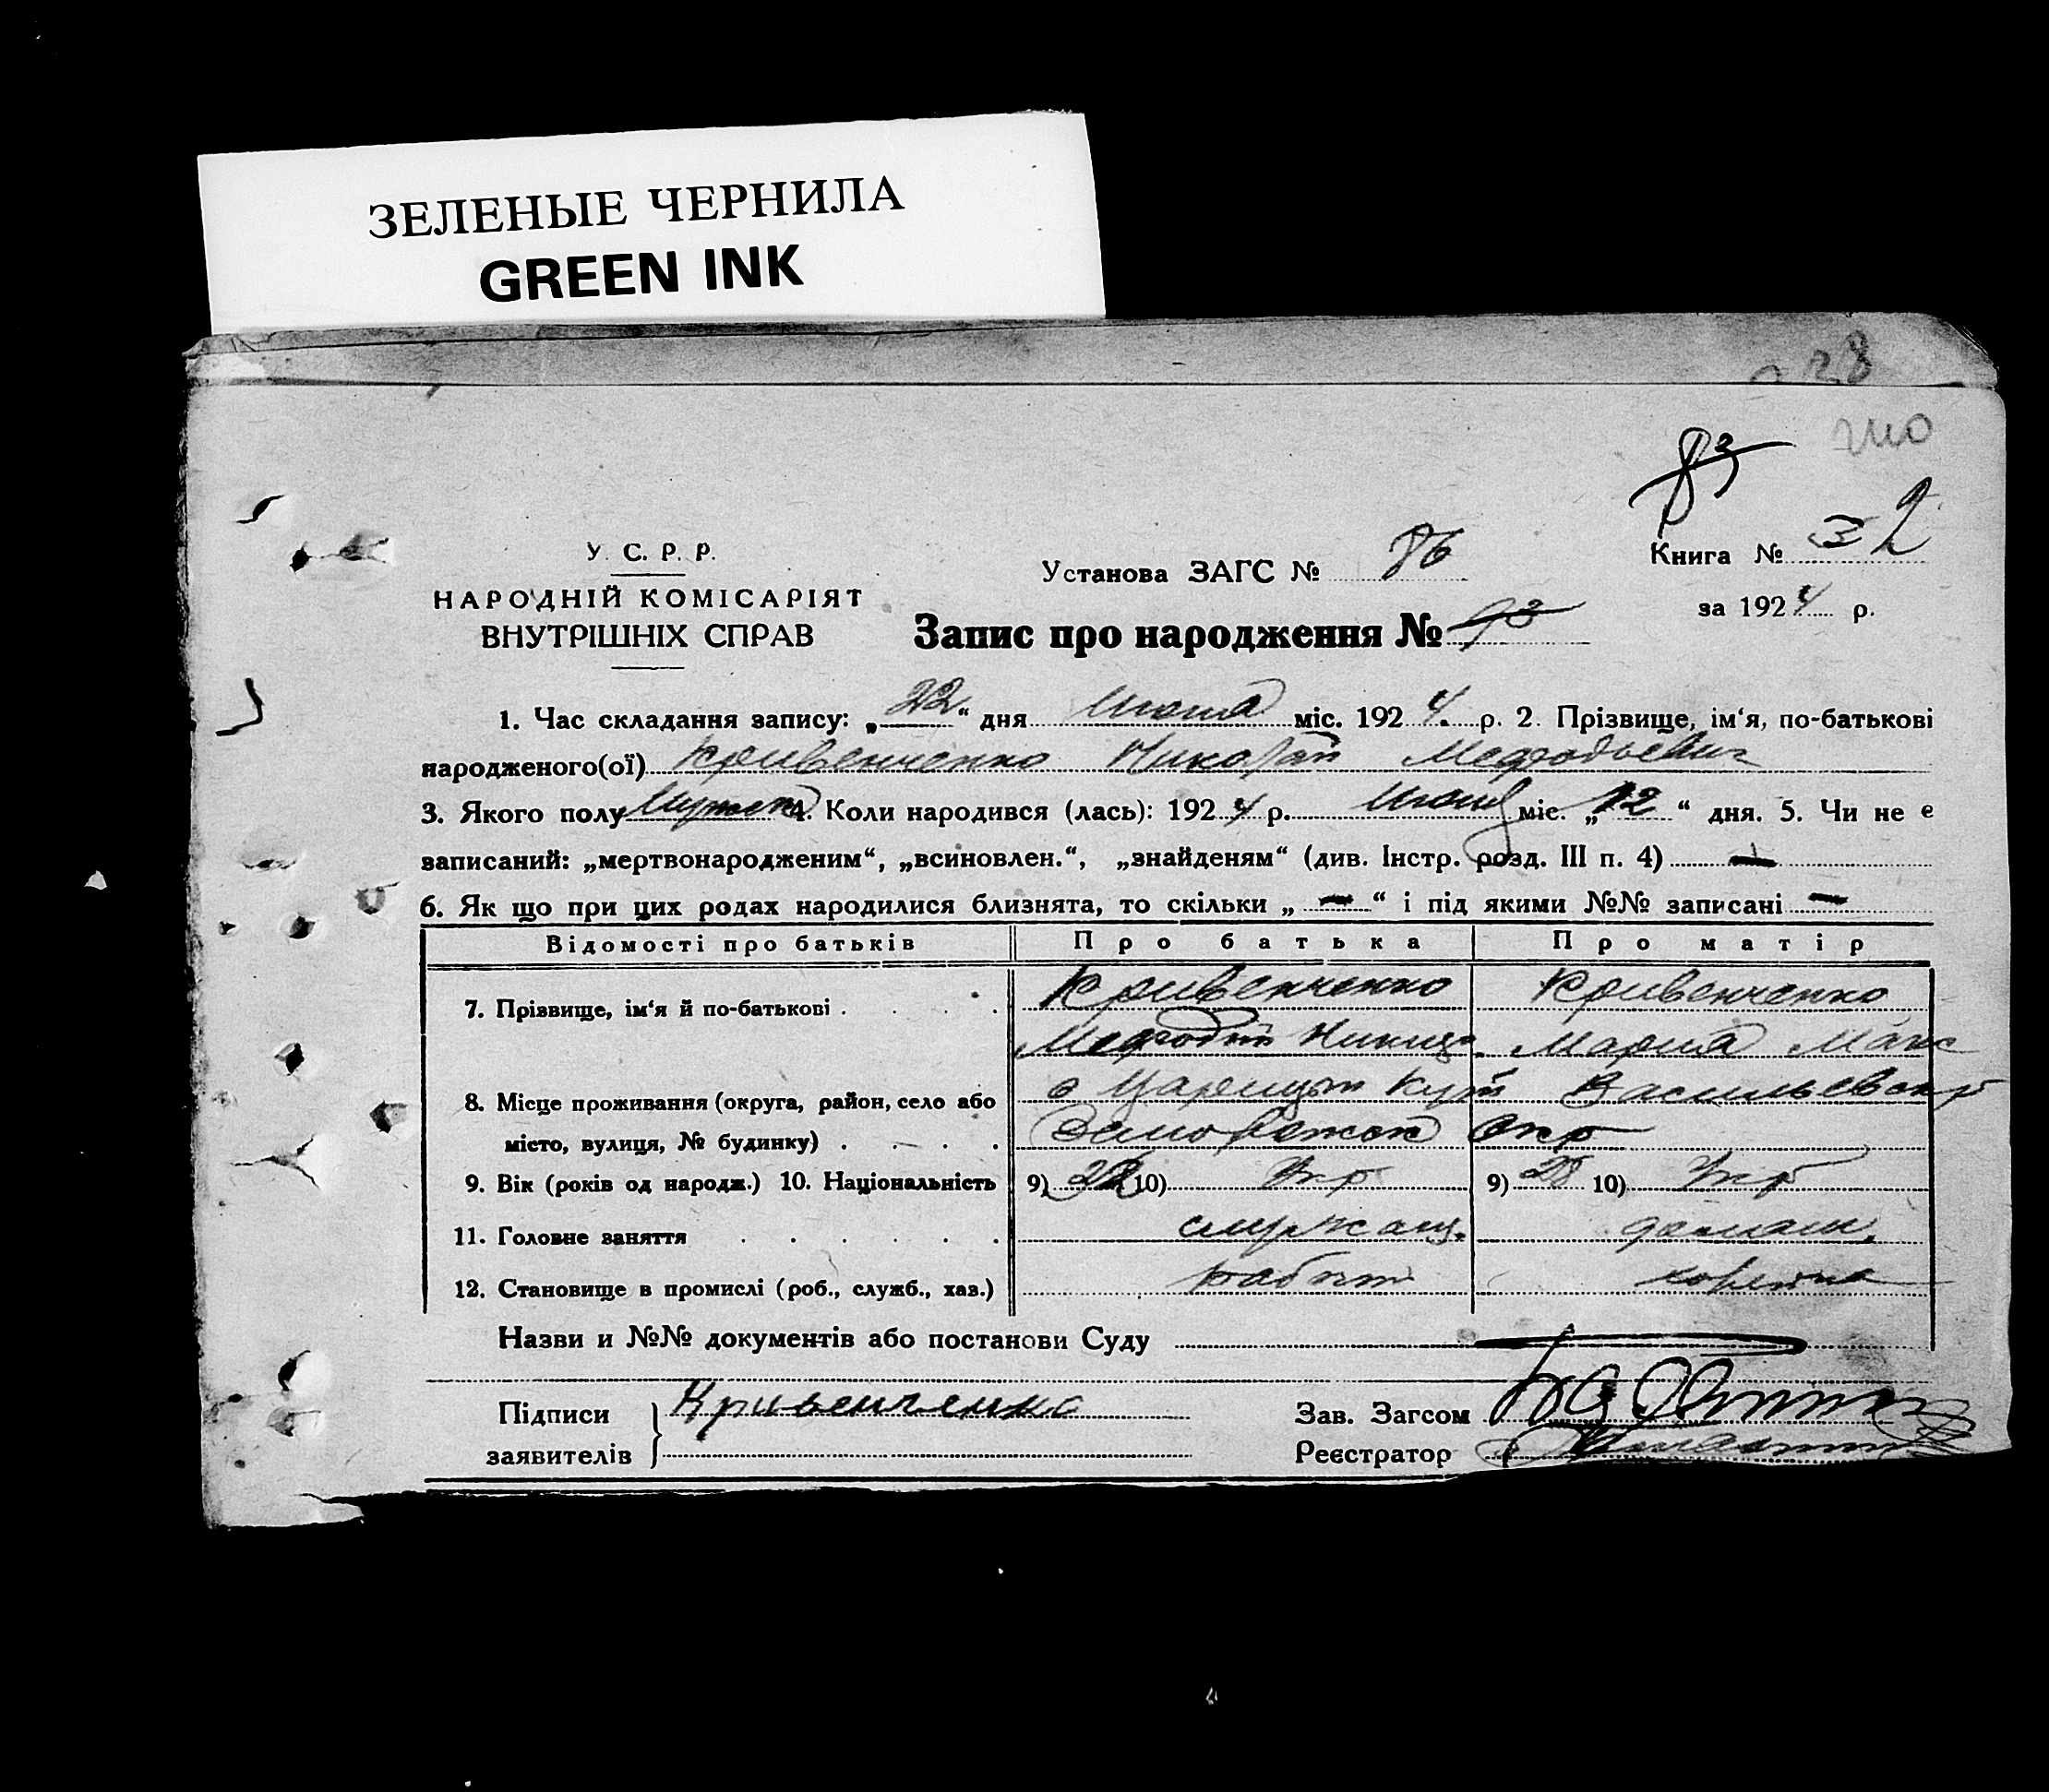 ЗЕЛЕНЫЕ ЧЕРНИЛА
GREEN INK
83
У. С. Р. Р.
НАРОДНІЙ КОМІСАРІЯТ
ВНУТРІШНІХ СПРАВ
Установа ЗАГС № 86
Книга № 32
за 1924 р.
Запис про народження № 93
1. Час складання запису: „22“ дня Июня міс. 1924. р. 2. Прізвище, ім‘я, по-батькові
народженого(ої) Кривенченко Николай Мефодьевич
3. Якого полу Мужск 4. Коли народився (лась): 1924 р. Июня міс. „12“ дня. 5. Чи не є
записаний: „мертвонародженим“, „всиновлен.“, „знайденям“ (див. Інстр. розд. III п. 4) —
6. Як що при цих родах народилися близнята, то скільки „—“ і під якими №№ записані —
Відомості про батьків Про батька Про матір
7. Прізвище, ім‘я й по-батькові Кривенченко Кривенченко
Мефодий Никиф. Мария Макс
8. Місце проживання (округа, район, село або с Царицын Кут Васильевск р
місто, вулиця, № будинку) Окр
9. Вік (років од народж.) 10. Національність 9) 32 10) Укр 9) 28 10) Укр
11. Головне заняття служащ. домаш.
12. Становище в промислі (роб., служб., хаз.)
Назви и №№ документів або постанови Суду
Підписи Кривенченко Зав. Загсом
заявителів Реєстратор